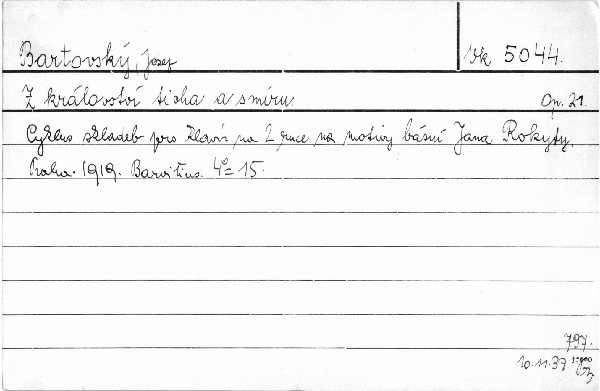 Bartovský, Josef
Vk 5044.
Z království ticha a smíru
Op. 21.
Cyklus skladeb pro klavír na 2 ruce na motivy básní Jana Rokyty.
Praha. 1919. Barvitius. 4° = 15.
797.
10.11.37